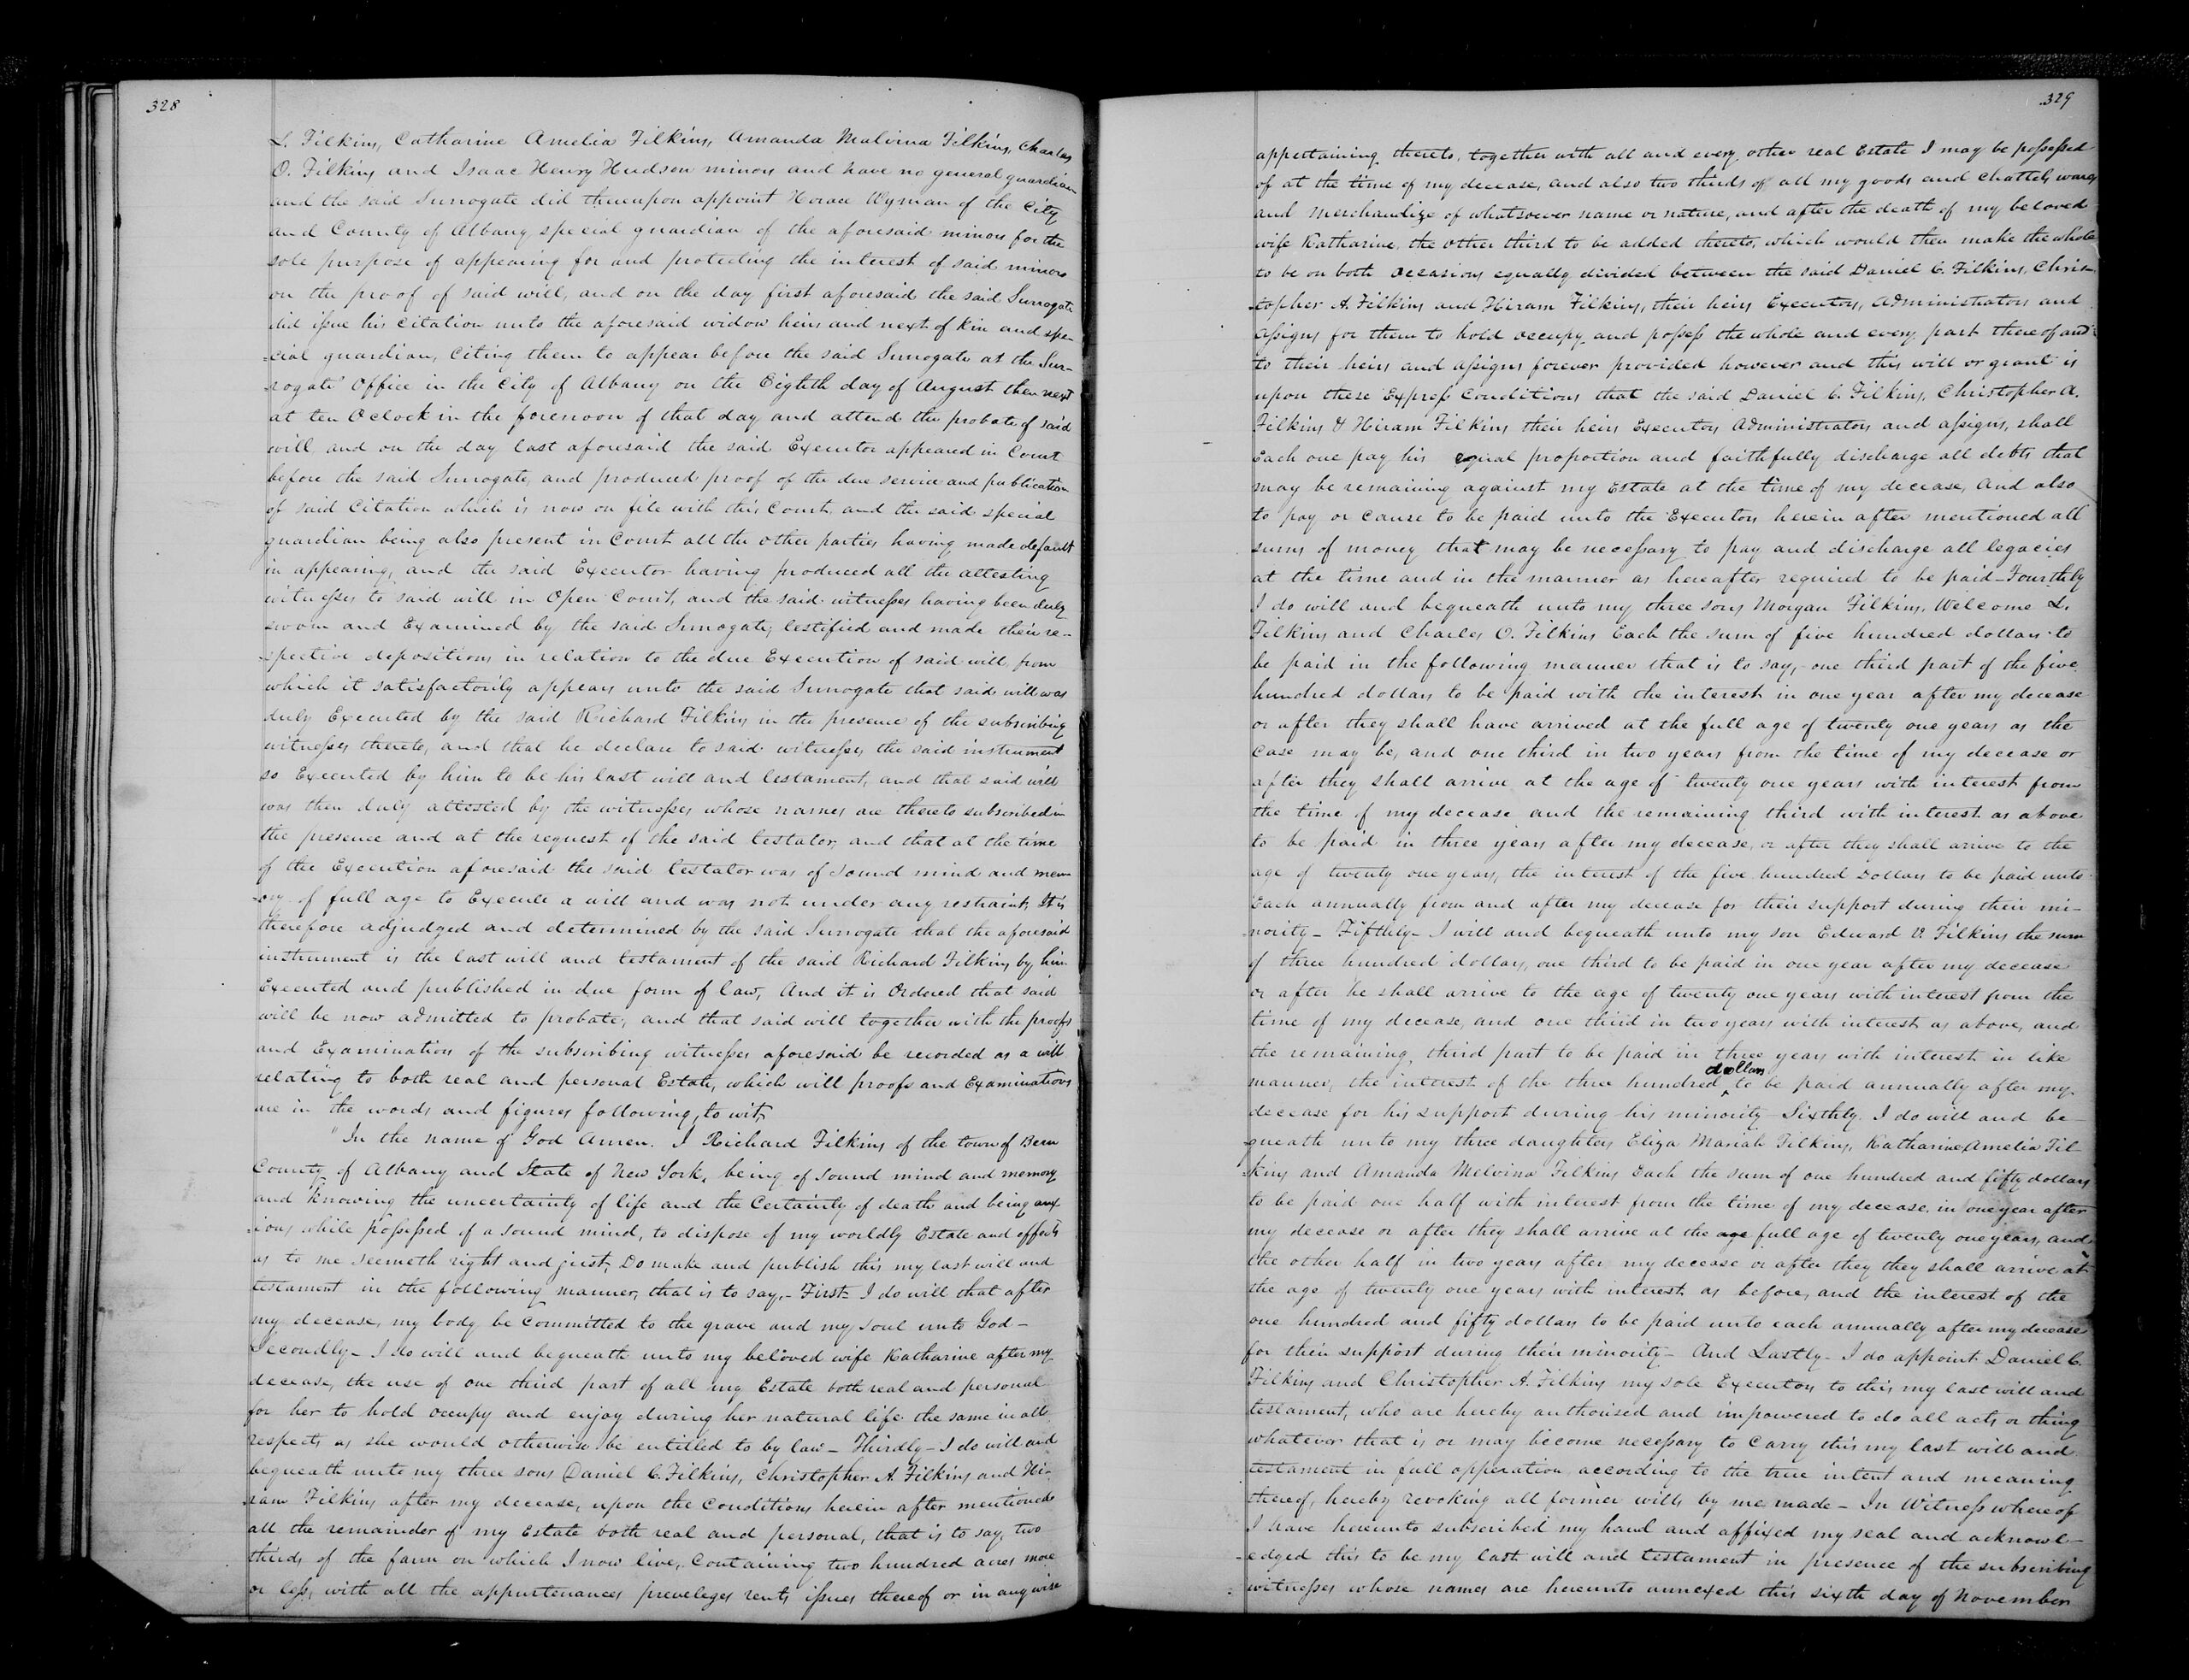 328
L. Filkins, Catharine Amelia Filkins, Amanda Malvina Filkins, Charles
O. Filkins and Isaac Henry Hudson minors and have no general guardian
and the said Surrogate did thereupon appoint Horace Wyman of the City
and County of Albany special guardian of the aforesaid minors for the
sole purpose of appearing for and protecting the interest of said minors
on the proof of said will, and on the day first aforesaid the said Surrogate
did issue his Citation unto the aforesaid widow heirs and next of kin and spe-
-cial guardian, Citing them to appear before the said Surrogate at the Sur-
-rogate Office in the City of Albany on the Eighth day of August then next
at ten Oclock in the forenoon of that day and attend the probate of said
will, and on the day last aforesaid the said Executor appeared in Court
before the said Surrogate, and produced proof of the due service and publication
of said Citation which is now on file with this Court, and the said special
guardian being also present in Court all the other parties having made default
in appearing, and the said Executor having produced all the attesting
witnesses to said will in Open Court, and the said witnesses having been duly
sworn and Examined by the said Surrogate, testified and made their re-
-spective depositions in relation to the due Execution of said will, from
which it satisfactorily appears unto the said Surrogate that said will was
duly Executed by the said Richard Filkins in the presence of the subscribing
witnesses thereto, and that he declare to said witnesses the said instrument
so Executed by him to be his last will and testament, and that said will
was then duly attested by the witnesses whose names are thereto subscribed in
the presence and at the request of the said testator, and that at the time
of the Execution aforesaid the said testator was of sound mind and mem-
-ory of full age to Execute a will and was not under any restraint, It is
therefore adjudged and determined by the said Surrogate that the aforesaid
instrument is the last will and testament of the said Richard Filkins by him
Executed and published in due form of law, And it is Ordered that said
will be now admitted to probate, and that said will together with the proofs
and Examination of the subscribing witnesses aforesaid be recorded as a will
relating to both real and personal Estate, which will proofs and Examinations
are in the words and figures following, to wit,
"In the name of God Amen. I Richard Filkins of the town of Bern
County of Albany and State of New York, being of sound mind and memory
and knowing the uncertainty of life and the Certainty of death and being anx-
-ious while possessed of a sound mind, to dispose of my worldly Estate and effects
as to me seemeth right and just, Do make and publish this my last will and
testament in the following manner, that is to say,- First- I do will that after
my decease, my body be Committed to the grave and my soul unto God-
Secondly- I do will and bequeath unto my beloved wife Katharine after my
decease, the use of one third part of all my Estate both real and personal
for her to hold occupy and enjoy during her natural life the same in all
respects as she would otherwise be entitled to by law- Thirdly- I do will and
bequeath unto my three sons Daniel C. Filkins, Christopher A. Filkins and Hi-
-ram Filkins after my decease, upon the Conditions herein after mentioned
all the remainder of my Estate both real and personal, that is to say, two
thirds of the farm on which I now live, Containing two hundred acres more
or less, with all the appurtenances preveleges rents issues thereof or in any wise
329
appertaining thereto, together with all and every other real Estate I may be possessed
of at the time of my decease, and also two thirds of all my goods and Chattels wares
and merchandize of whatsoever name or nature, and after the death of my beloved
wife Katharine, the other third to be added thereto, which would then make the whole
to be on both occasions equally divided between the said Daniel C. Filkins, Chris-
-topher A. Filkins and Hiram Filkins, their heirs Executors, Administrators and
Assigns for them to hold occupy and possess the whole and every part thereof and
to their heirs and assigns forever provided however and this will or grant is
upon these Express Conditions that the said Daniel C. Filkins, Christopher A.
Filkins & Hiram Filkins their heirs Executors Administrators and assigns, shall
Each one pay his equal proportion and faithfully discharge all debts that
may be remaining against my Estate at the time of my decease, And also
to pay or cause to be paid unto the Executors herein after mentioned all
sums of money that may be necessary to pay and discharge all legacies
at the time and in the manner as hereafter required to be paid-Fourthly
I do will and bequeath unto my three sons Morgan Filkins, Welcome L.
Filkins and Charles O. Filkins Each the sum of five hundred dollars to
be paid in the following manner that is to say,- one third part of the five
hundred dollars to be paid with the interest in one year after my decease
or after they shall have arrived at the full age of twenty one years as the
Case may be, and one third in two years from the time of my decease or
after they shall arrive at the age of twenty one years with interest from
the time of my decease and the remaining third with interest as above
to be paid in three years after my decease, or after they shall arrive to the
age of twenty one years, the interest of the five hundred Dollars to be paid unto
Each annually from and after my decease for their support during their mi-
-nority- Fifthly- I will and bequeath unto my son Edward V. Filkins the sum
of three hundred dollars, one third to be paid in one year after my decease
or after he shall arrive to the age of twenty one years with interest from the
time of my decease, and one third in two years with interest as above, and
the remaining third part to be paid in three years with interest in like
manner, the interest of the three hundred dollars to be paid annually after my
decease for his support during his minority- Sixthly. I do will and be-
-queath unto my three daughters Eliza Mariah Filkins, Katharine Amelia Fil-
-kins and Amanda Melvina Filkins Each the sum of one hundred and fifty dollars
to be paid one half with interest from the time of my decease in one year after
my decease or after they shall arrive at the age full age of twenty one years, and
the other half in two years after my decease or after they they shall arrive at
the age of twenty one years with interest as before, and the interest of the
one hundred and fifty dollars to be paid unto each annually after my decease
for their support during their minority- And Lastly- I do appoint Daniel C.
Filkins and Christopher A. Filkins my sole Executors to this my last will and
testament, who are hereby authorised and impowered to do all acts or thing
whatever that is or may become necessary to Carry this my last will and
testament in full opperation according to the true intent and meaning
thereof, hereby revoking all former wills by me made- In Witness whereof
I have hereunto subscribed my hand and affixed my seal and acknowl-
-edged this to be my last will and testament in presence of the subscribing
witnesses whose names are hereunto annexed this sixth day of November